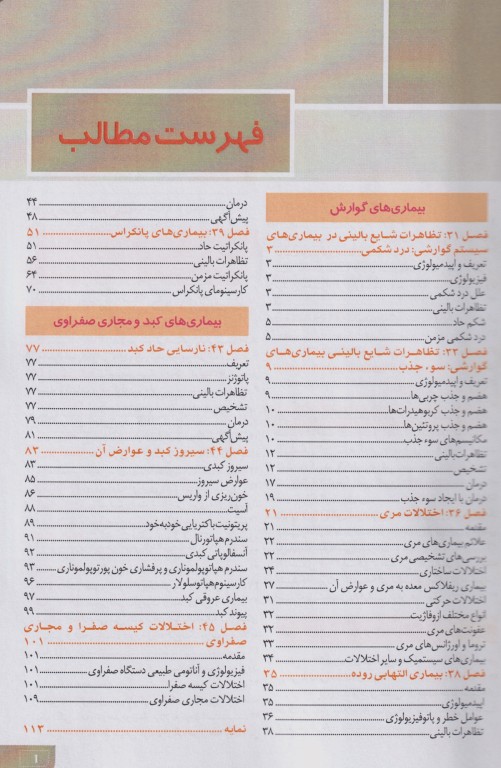 فهرست مطالب
بیماری‌های گوارش
فصل ۳۱: تظاهرات شایع بالینی در بیماری‌های
سیستم گوارشی: درد شکمی ۳
تعریف و اپیدمیولوژی ۳
فیزیولوژی ۳
علل درد شکمی ۳
تظاهرات بالینی ۳
شکم حاد ۵
درد شکمی مزمن ۵
فصل ۳۳: تظاهرات شایع بالینی بیماری‌های
گوارشی: سوء جذب ۹
تعریف و اپیدمیولوژی ۹
هضم و جذب چربی‌ها ۹
هضم و جذب کربوهیدرات‌ها ۱۰
هضم و جذب پروتئین‌ها ۱۰
مکانیسم‌های سوء جذب ۱۰
تظاهرات بالینی ۱۲
تشخیص ۱۲
درمان ۱۷
درمان با ایجاد سوء جذب ۱۹
فصل ۳۶: اختلالات مری ۲۱
مقدمه ۲۱
علائم بیماری‌های مری ۲۲
بررسی‌های تشخیصی مری ۲۲
اختلالات ساختاری ۲۴
بیماری ریفلاکس معده به مری و عوارض آن ۲۷
اختلالات حرکتی ۳۱
انواع مختلف ازوفاژیت ۳۲
عفونت‌های مری ۳۲
تروما و اورژانس‌های مری ۳۳
بیماری‌های سیستمیک و سایر اختلالات ۳۴
فصل ۳۸: بیماری التهابی روده ۳۵
مقدمه ۳۵
اپیدمیولوژی ۳۵
عوامل خطر و پاتوفیزیولوژی ۳۶
تظاهرات بالینی ۳۸
درمان ۴۴
پیش‌آگهی ۴۸
فصل ۳۹: بیماری‌های پانکراس ۵۱
پانکراتیت حاد ۵۱
تظاهرات بالینی ۵۶
پانکراتیت مزمن ۶۴
کارسینومای پانکراس ۷۰
بیماری‌های کبد و مجاری صفراوی
فصل ۴۳: نارسایی حاد کبد ۷۷
تعریف ۷۷
پاتوژنز ۷۷
تظاهرات بالینی ۷۷
تشخیص ۷۷
درمان ۷۹
پیش‌آگهی ۸۱
فصل ۴۴: سیروز کبد و عوارض آن ۸۳
سیروز کبدی ۸۳
عوارض سیروز ۸۵
خون‌ریزی از واریس ۸۶
آسیت ۸۸
پریتونیت باکتریایی خودبه‌خود ۸۹
سندرم هپاتورنال ۹۱
آنسفالوپاتی کبدی ۹۲
سندرم هپاتوپولموناری و پرفشاری خون پورتوپولموناری ۹۳
کارسینوم هپاتوسلولار ۹۶
بیماری عروقی کبد ۹۷
پیوند کبد ۹۹
فصل ۴۵: اختلالات کیسه صفرا و مجاری
صفراوی ۱۰۱
مقدمه ۱۰۱
فیزیولوژی و آناتومی طبیعی دستگاه صفراوی ۱۰۱
اختلالات کیسه صفرا ۱۰۱
اختلالات مجاری صفراوی ۱۰۹
نمایه ۱۱۳
I